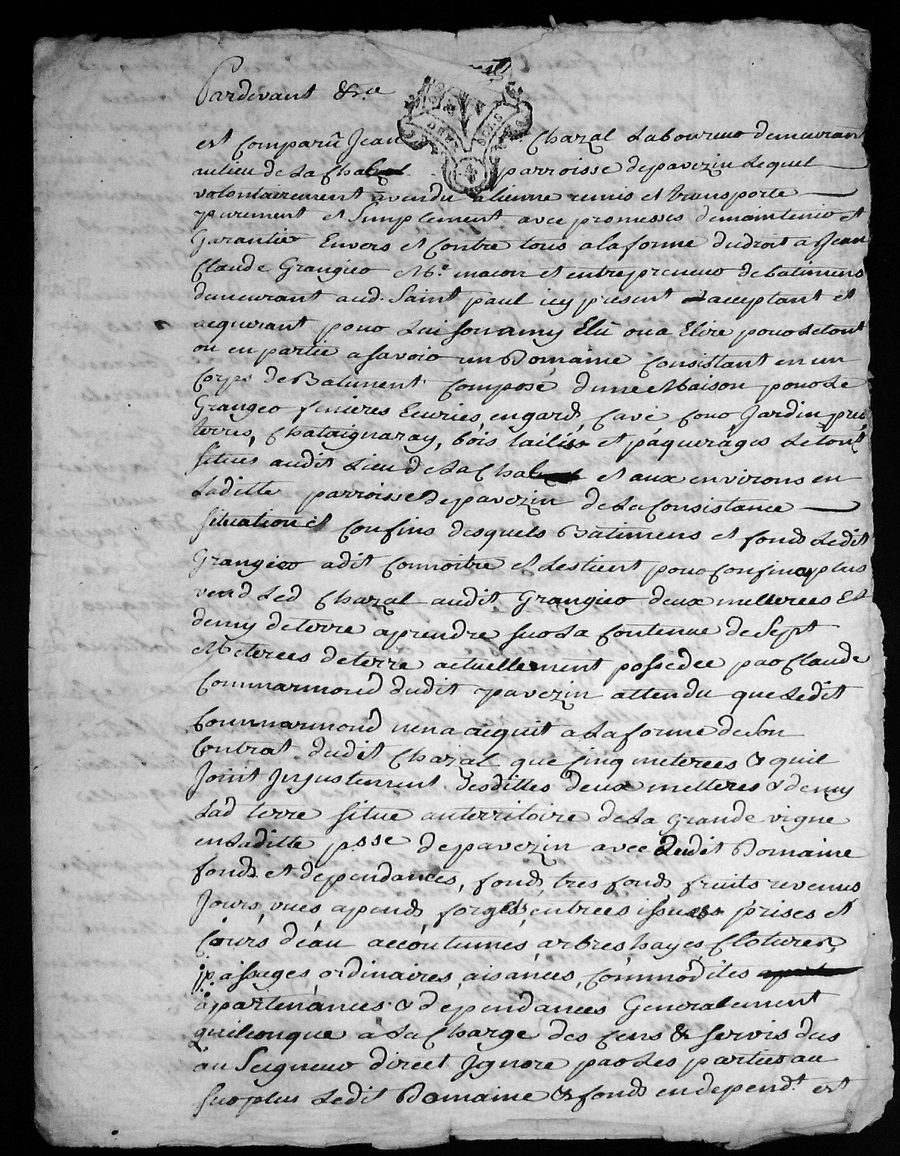 Pardevant &c.a
est Comparû Jean Chazal Laboureur demeurant
au lieu de La Chal parroisse de pavezin Lequel
volontairement a vendu aliene remis et transporte
purement et Simplement avec promesses de maintenir et
Garantir Envers et Contre tous a la forme du droit a Jean
Claude Grangier Me. macon et entrepreneur de batimens
demeurant aud. Saint paul icy present acceptant et
acquerant pour Lui son amy Elû ou a Elire pour Le tout
ou en partie a savoir un Domaine Consistant en un
Corps de Batiment Composé d'une Maison pour Le
Granger fenieres Ecuries engard, Cave Cour Jardin prés
terres, Chataignaray, bois tailis et pâquerâges Le tout
situés audit Lieu de La Chal et aux environs en
Laditte parroisse de pavezin de La Consistance
situation et Confins desquels Batimens et fonds Ledit
Grangier a dit Connoitre et Destient pour Confines plus
vend Led Chazal audit Grangier deux metterees Et
demy de terre a prendre sur La Contenue de Sept
Meterees de terre actuellement possedee par Claude
Commarmond dudit pavezin attendu que Ledit
Commarmond n'en a acquit a La forme de Son
Contrat dudit Chazal que Cinq meterees & quil
Joint Injustement Desdittes deux metteres & demy
Lad terre situe au territoire de La Grande vigne
en Laditte psse de pavezin avec Ledit Domaine
fonds et dependances, fonds, tres fonds fruits revenus
Jours, vües apends forgets, entrees issues prises et
Cours d'eau accoûtumés arbres hayes Clotures,
passages ordinaires, aisances, Commodites
apartenances & dependances Generalement
quilconque a La Charge des Cens & servis dus
au Seigneur direct Ignoré par Les parties au
surplus Ledit Domaine & fonds en depend.t est